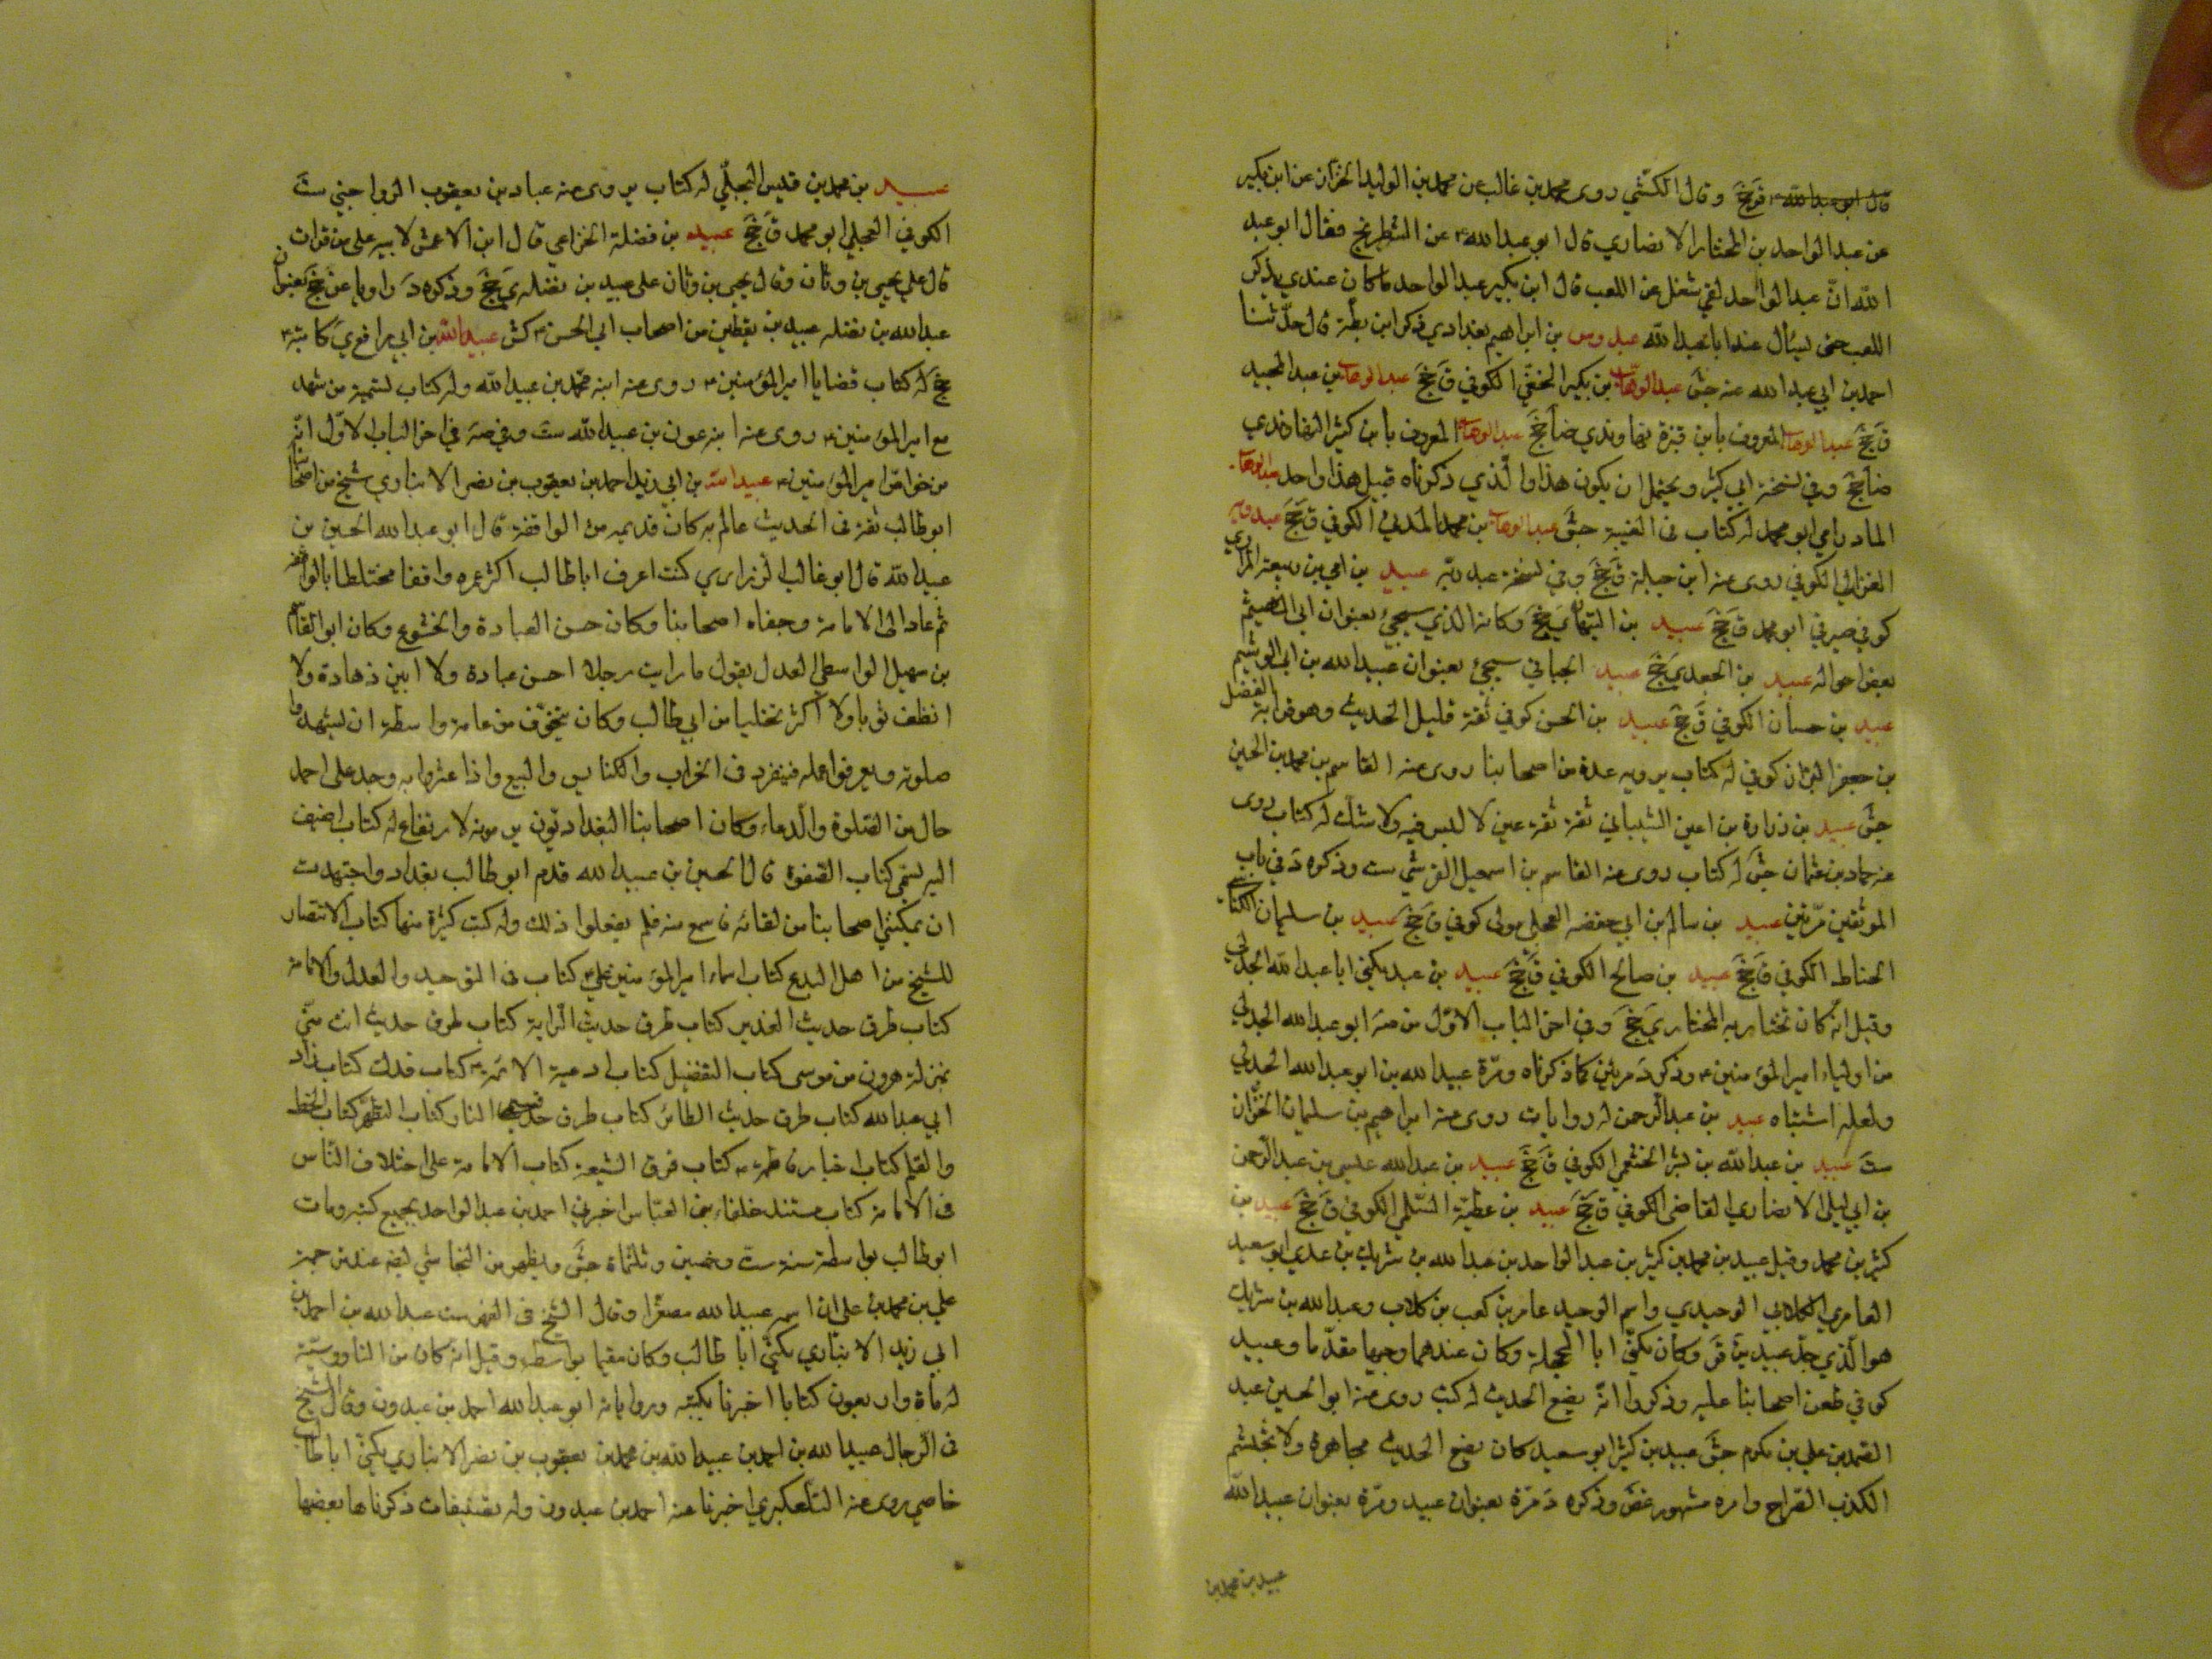 قال ابو عبد الله ؑ ق جخ وقال الكشي روى محمد بن غالب عن محمد بن الوليد الخزان عن ابن بكير
عن عبد الواحد بن المختار الانصاري قال ابو عبد الله ؑ عن الشطرنج فقال ابو عبد
الله انّ عبد الواحد لفي شغل عن اللعب قال ابن بكير عبد الواحد ما كان عندي يذكر
اللعب حتى يسئال عنه ابا عبد الله عبدوس بن ابراهيم بغدادي ذكر ابن بطة قال حدّثنا
احمد بن ابي عبد الله عنه جش عبد الوهاب بن بكير الحنفي الكوفي ق جخ عبد الوهاب بن عبد المجيد
ق جخ عبد الوهاب المعروف بابن قنزة نهاوندي ضا جخ عبد الوهاب المعروف بابن كثير النهاوندي
ضا جخ وفي نسخة ابي كثير ويحتمل ان يكون هذا والّذي ذكرناه قبيل هذا واحد عبد الوهاب
المادراي ابو محمد له كتاب فى الغيبة جش عبد الوهاب بن محمد المدني الكوفي ق جخ عبد ربه
الكوفي روى عنه ابن جبلة ق جخ وفي نسخة عبد ربّه عبيد بن ربيعة المرادي
كوفي صيرفي ابو محمد ق جخ عبيد بن التيهان ي جخ وكانه الذي سيجئ بعنوان ابي الهيثم
بعض احواله عبيد بن الجعد ي جخ عبيد سيجئ بعنوان عبيد الله بن ابي الوشيم
عبيد بن حسان الكوفي ق جخ عبيد بن الحسن كوفي ثقة قليل الحديث وهو قرابة الفضل
بن جعفر البزان كوفي له كتاب يرويه عدة من اصحابنا روى عنه القاسم بن محمد بن الحسين
جش عبيد بن زرارة بن اعين الشيباني ثقة ثقة عين لا لبس فيه ولا شك له كتاب روى
عنه حماد بن عثمان جش له كتاب روى عنه القاسم بن اسمعيل القرشي ست وذكره د في باب
الموثقين مرّتين عبيد بن سالم ابن ابي حفصه العجلي مولى كوفي ق جخ عبيد بن سليمان
الحناط الكوفي ق جخ عبيد بن صالح الكوفي ق جخ عبيد بن عبد يكنى ابا عبد الله الجدلي
وقيل انه كان تحت راية المختار ي جخ وفي اخر الباب الاوّل من صه ابو عبد الله الجدلي
من اولياء امير المؤمنين ؑ وذكره د مرتين كما ذكرناه ومرّة عبيد الله بن ابو عبد الله الجدلي
ولعله اشتباه عبيد بن عبد الرحمن له روايات روى عنه ابراهيم بن سليمان الخزّان
ست عبيد بن عبد الله بن بشر الخثعمي الكوفي ق جخ عبيد بن عبد الله عيسى بن عبد الرحمن
بن ابي ليلى الانصاري القاضى الكوفي ق جخ عبيد بن عطيّة السّلمي الكوفي ق جخ عبيد بن
كثير بن محمد وقيل عبيد بن محمد بن كثير بن عبد الواحد بن عبد الله بن شريك بن عدي ابو سعيد
العامري الكلابي الوحيدي واسم الوحيد عامر بن كعب بن كلاب وعبد الله بن شريك
هو الّذي جدّ عبيد ين قر وكان يكنّى ابا المحجلة وكان عندهما وجيها مقدّما وعبيد
كوفي طعن اصحابنا عليه وذكروا انّه يضع الحديث له كتب روى عنه ابو الحسين عبد
الصّمد بن علي بن مكرم جش عبيد بن كثير ابو سعيد كان يضع الحديث مجاهرة ولا يحتشم
الكذب الصّراح وامره مشهور غض وذكره د مرّة بعنوان عبيد ومرّة بعنوان عبيد الله
عبيد بن محمد بن
عبيد بن محمد بن قيس البجلّي له كتاب يروى عنه عباد بن يعقوب الرواجني ست
الكوفي العجلي ابو محمد ق جخ عبيد بن فضلة الخزاعي قال ابن الاعمش لابيه على من قرات
قال على يحيى بن وثاب وقال يحيى بن وثاب على عبيد بن نضله ي جخ وذكره د راويا عن جخ بعنوان
عبد الله بن نضله عبيد بن يقطين من اصحاب ابي الحسن ؑ كش عبيد الله بن ابي رافع ي كاتبه ؑ
جخ له كتاب قضايا امير المؤمنين ؑ روى عنه ابنه محمّد بن عبيد الله وله كتاب تسمية من شهد
مع امير المؤمنين ؑ روى عنه ابنه عون بن عبيد الله ست وفي صه في اخر الباب الاوّل انّه
من خواصّ امير المؤمنين ؑ عبيد الله بن ابي زيد احمد بن يعقوب بن نصر الانباري شيخ من اصحابنا
ابو طالب ثقة فى الحديث عالم به كان قديمه من الواقفة قال ابو عبد الله الحسين بن
عبيد الله قال ابو غالب الزراري كنت اعرف ابا طالب اكثر عمره واقفا مختلطا بالواقفه
ثم عاد الى الامامة وجفاه اصحابنا وكان حسن العبادة والخشوع وكان ابو القاسم
بن سهيل الواسطي العدل يقول ما رايت رجلا احسن عبادة ولا ابين زهادة ولا
انظف ثوبا ولا اكثر تخليا من ابي طالب وكان يتخوّف من عامة واسط ان يشهدوا
صلوته ويعرفوا عمله فينفرد فى الخراب والكنايس والبيع واذا عثروا به وجد على احمد
حال من الصّلوة والدعاء وكان اصحابنا البغداديّون يرمونه لارتفاع له كتاب اضيف
اليه يسمى كتاب الصّفوة قال الحسين بن عبيد الله قدم ابو طالب بغداد واجتهدت
ان يمكّنني اصحابنا من لقائه فاسمع منه فلم يفعلوا ذلك وله كتب كثيرة منها كتاب الانتصار
للشيع من اهل البدع كتاب اسماء امير المؤمنين علي ؑ كتاب فى التوحيد والعدل والامامة
كتاب طرق حديث الغدير كتاب طرق حديث الرّاية كتاب طرق حديث انت منّي
بمنزلة هرون من موسى كتاب التفضيل كتاب ادعية الائمة ؑ كتاب فدك كتاب مزار
ابي عبد الله كتاب طرق حديث الطائر كتاب طرق حديث قسيم النار كتاب التطهير كتاب الخط
والقلم كتاب اخبار فاطمة ؑ كتاب فرق الشيعة كتاب الامامة على اختلاف النّاس
فى الامامة كتاب مسند خلفاء بني العبّاس اخبرني احمد بن عبد الواحد بجميع كتبه ومات
ابو طالب بواسطة سنة ست وخمسين وثلثماة جش ويظهر من النجاشي ايضا عند بن حمزة
علي بن محمد بن على ان اسمه عبيد الله مصغرا وقال الشيخ فى الفهرست عبد الله بن احمد بن
ابي زيد الانباري يكنّى ابا طالب وكان مقيما بواسط وقيل انه كان من الناووسيّة
له ماة واربعون كتابا اخبرنا بكتبه ورواياته ابو عبد الله احمد بن عبدون وقال الشيخ
فى الرّجال عبيد الله بن احمد بن عبيد الله بن محمد بن يعقوب بن نصر الانباري يكنّى ابا طالب
خاصي روى عنه التلّعكبري اخبرنا عنه احمد بن عبدون وله تصنيفات ذكرناها بعضها